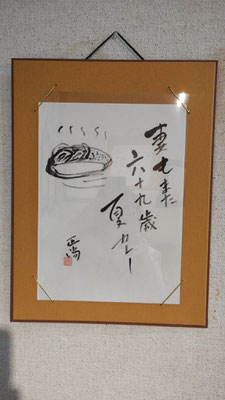 妻もまた
六十九歳
夏カレー
正尚